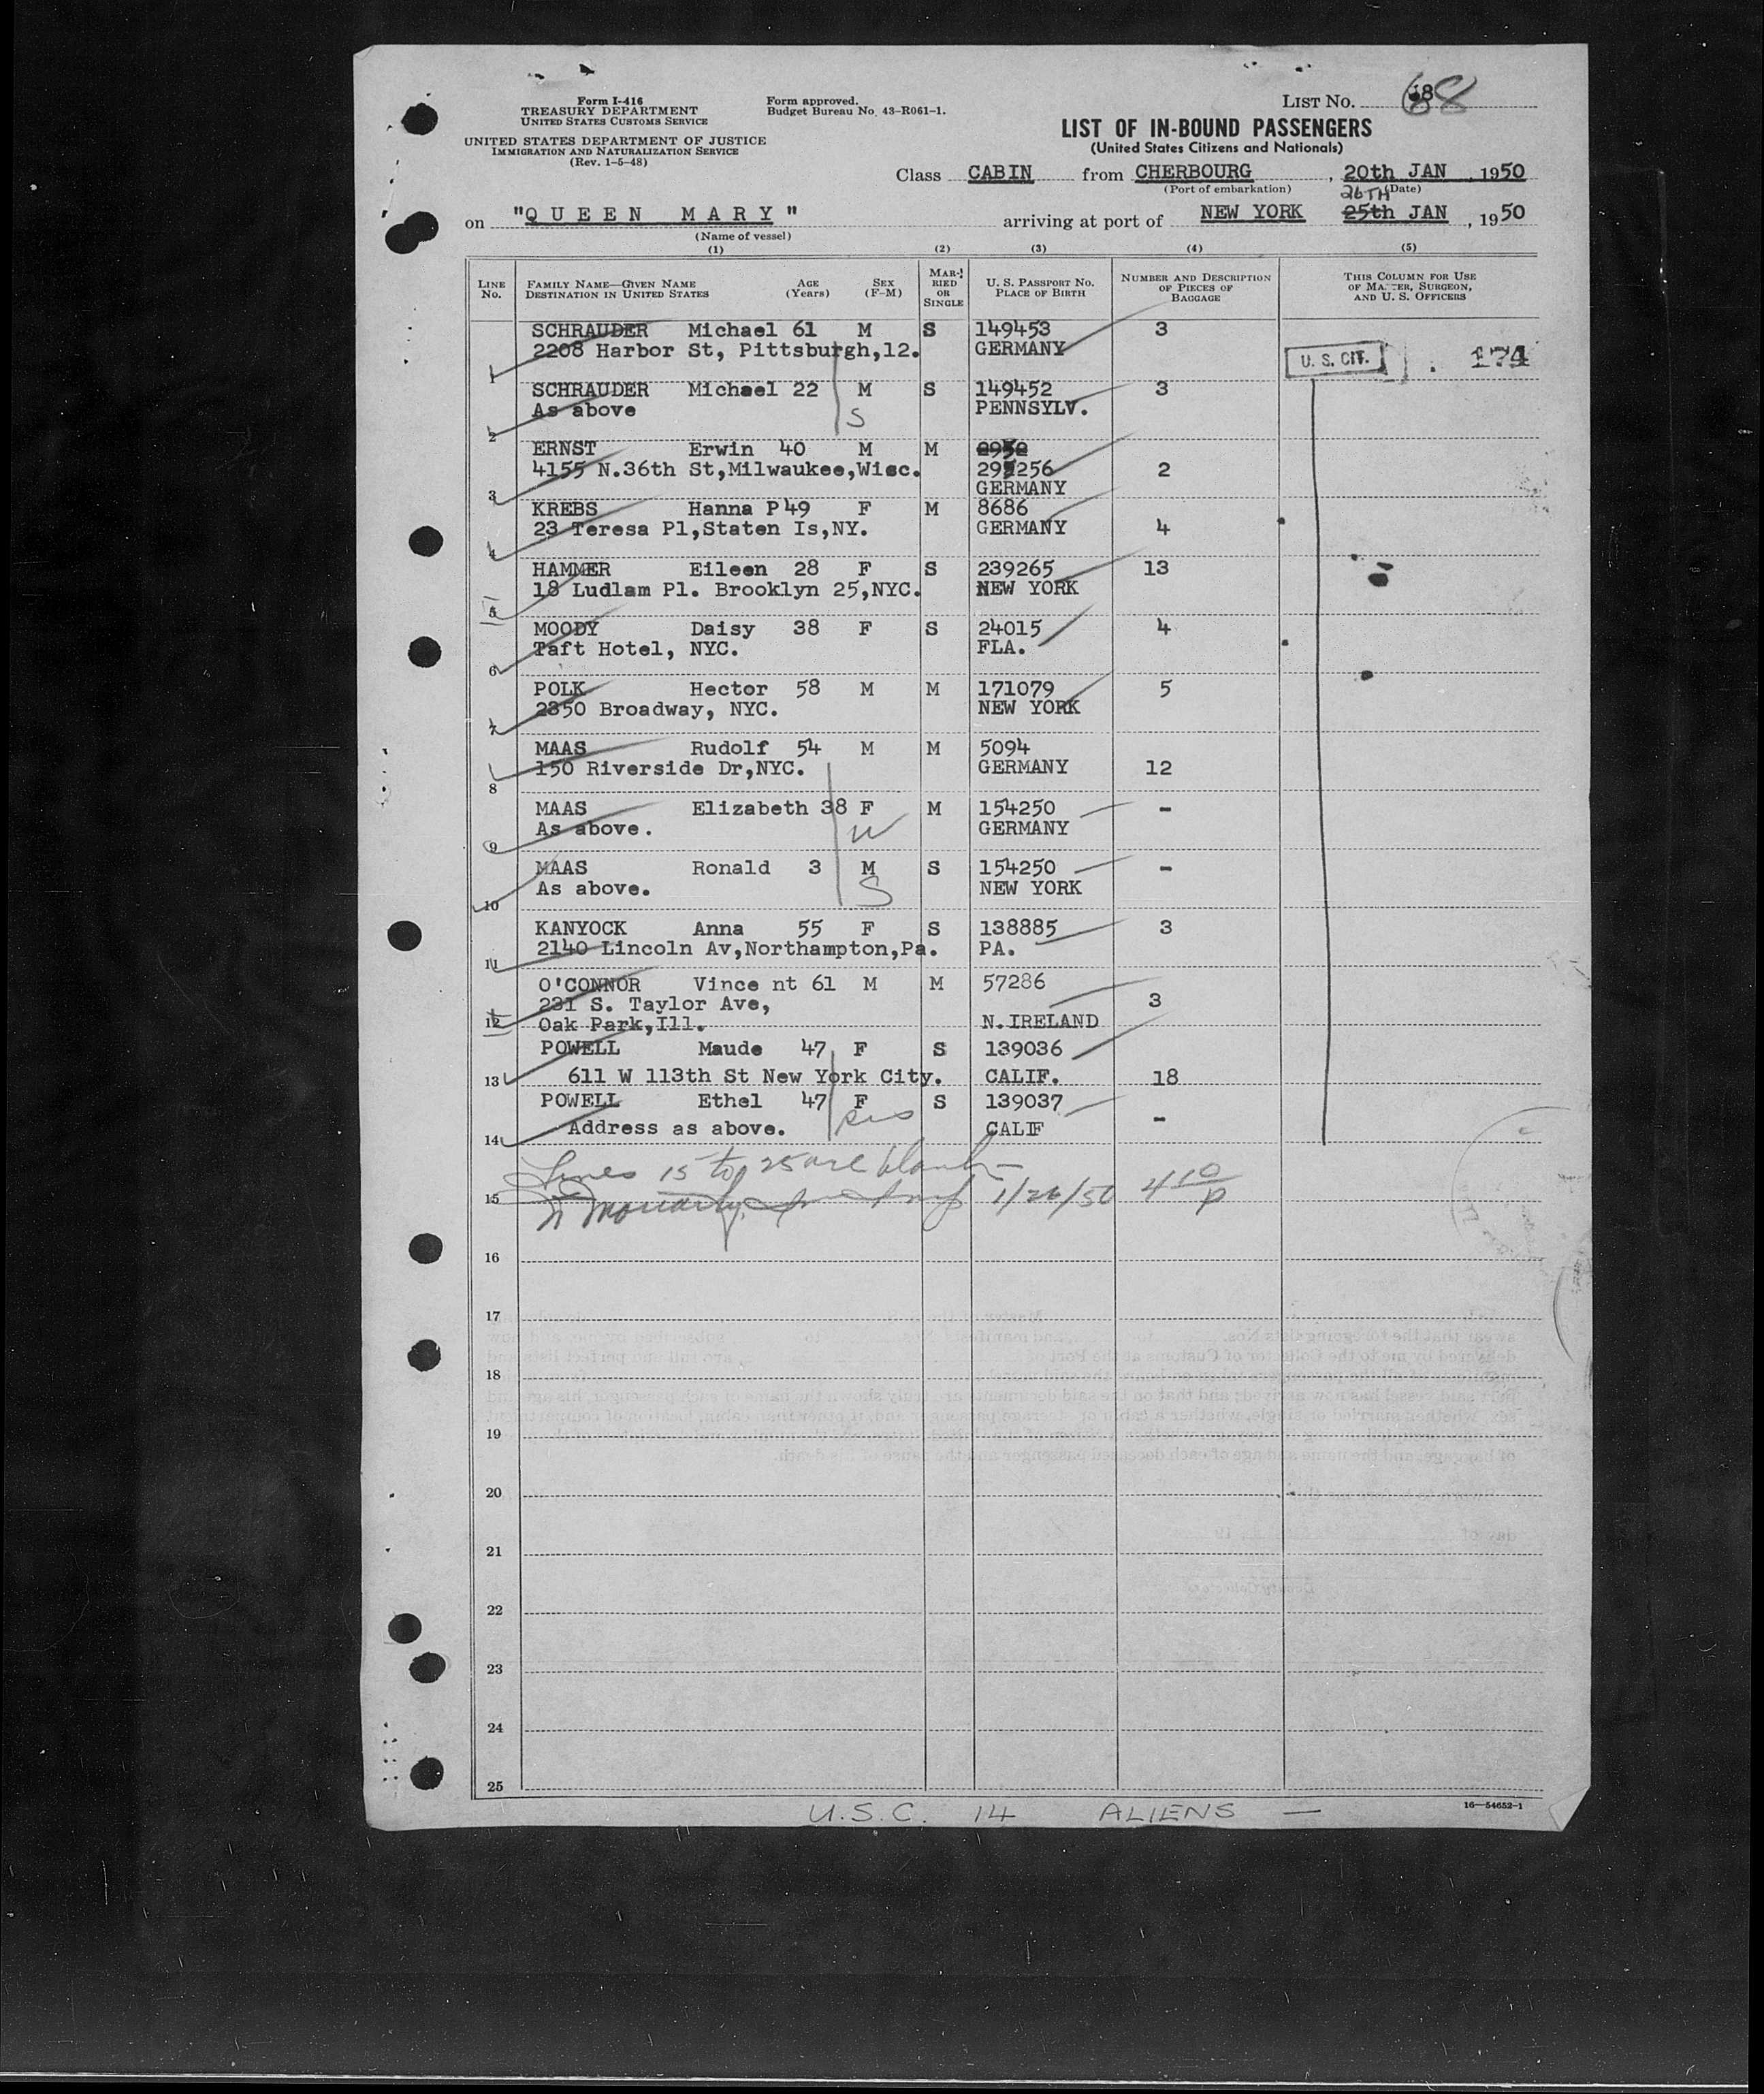 Form I-416
TREASURY DEPARTMENT
UNITED STATES CUSTOMS SERVICE
UNITED STATES DEPARTMENT OF JUSTICE
IMMIGRATION AND NATURALIZATION SERVICE
(Rev. 1-5-48)
Form approved.
Budget Bureau No. 43-R061-1.
LIST NO. 68
LIST OF IN-BOUND PASSENGERS
(United States Citizens and Nationals)
Class CABIN from CHERBOURG, 20th JAN, 1950
(Port of embarkation) (Date)
26TH
on "QUEEN MARY" arriving at port of NEW YORK 25th JAN, 1950
(Name of vessel)
(1) (2) (3) (4) (5)
LINE NO.
FAMILY NAME—GIVEN NAME
DESTINATION IN UNITED STATES
AGE (Years)
SEX (F-M)
MARRIED OR SINGLE
U. S. PASSPORT NO.
PLACE OF BIRTH
NUMBER AND DESCRIPTION OF PIECES OF BAGGAGE
THIS COLUMN FOR USE OF MASTER, SURGEON, AND U. S. OFFICERS
SCHRAUDER Michael 61 M S 149453 3
1 2208 Harbor St, Pittsburgh,12. GERMANY U. S. CIT. 174
SCHRAUDER Michael 22 M S 149452 3
2 As above S PENNSYLV.
ERNST Erwin 40 M M
4155 N.36th St,Milwaukee,Wisc. 2
3 GERMANY
KREBS Hanna P 49 F M 8686
4 23 Teresa Pl,Staten Is,NY. GERMANY 4
HAMMER Eileen 28 F S 239265 13
5 18 Ludlam Pl. Brooklyn 25,NYC. NEW YORK
MOODY Daisy 38 F S 24015 4
6 Taft Hotel, NYC. FLA.
POLK Hector 58 M M 171079 5
7 2350 Broadway, NYC. NEW YORK
MAAS Rudolf 54 M M 5094
8 150 Riverside Dr,NYC. GERMANY 12
MAAS Elizabeth 38 F M 154250 -
9 As above. W GERMANY
MAAS Ronald 3 M S 154250 -
10 As above. S NEW YORK
KANYOCK Anna 55 F S 138885 3
11 2140 Lincoln Av,Northampton,Pa. PA.
O'CONNOR Vince nt 61 M M 57286
231 S. Taylor Ave, 3
12 Oak Park,Ill. N.IRELAND
POWELL Maude 47 F S 139036
13 611 W 113th St New York City. CALIF. 18
POWELL Ethel 47 F S 139037 -
14 Address as above. sis CALIF
Lines 15 to 25 are blank
15 Moriarty 1/26/50 4 10 p
16
17
18
19
20
21
22
23
24
25
U.S.C. 14 ALIENS —
16—54652-1